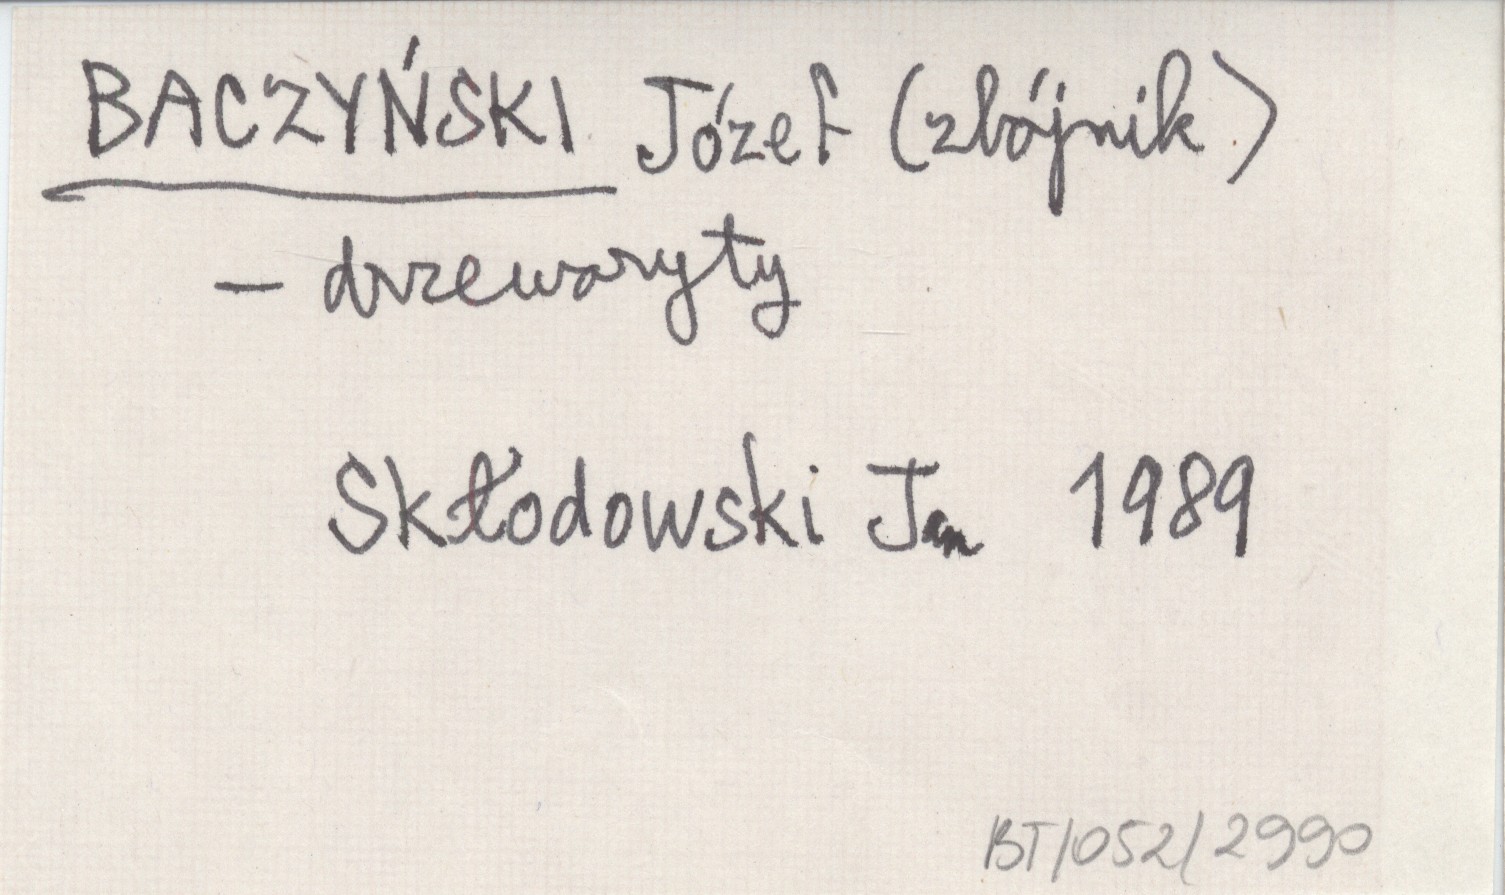 BACZYŃSKI Józef (zbójnik)
- drzeworyty
Skłodowski Jan 1989
BT/052/2990